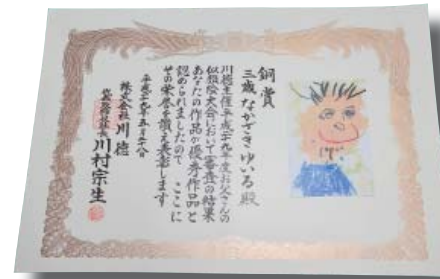 銅賞
三歳 なかざき ゆいろ 殿
川徳主催平成二十九年度お父さんの
似顔絵大会において審査の結果
あなたの作品が優秀作品と
認められましたので ここに
その栄誉を讃え表彰します
平成二十九年五月二十八日
株式会社 川徳
代表取締役社長 川村宗生